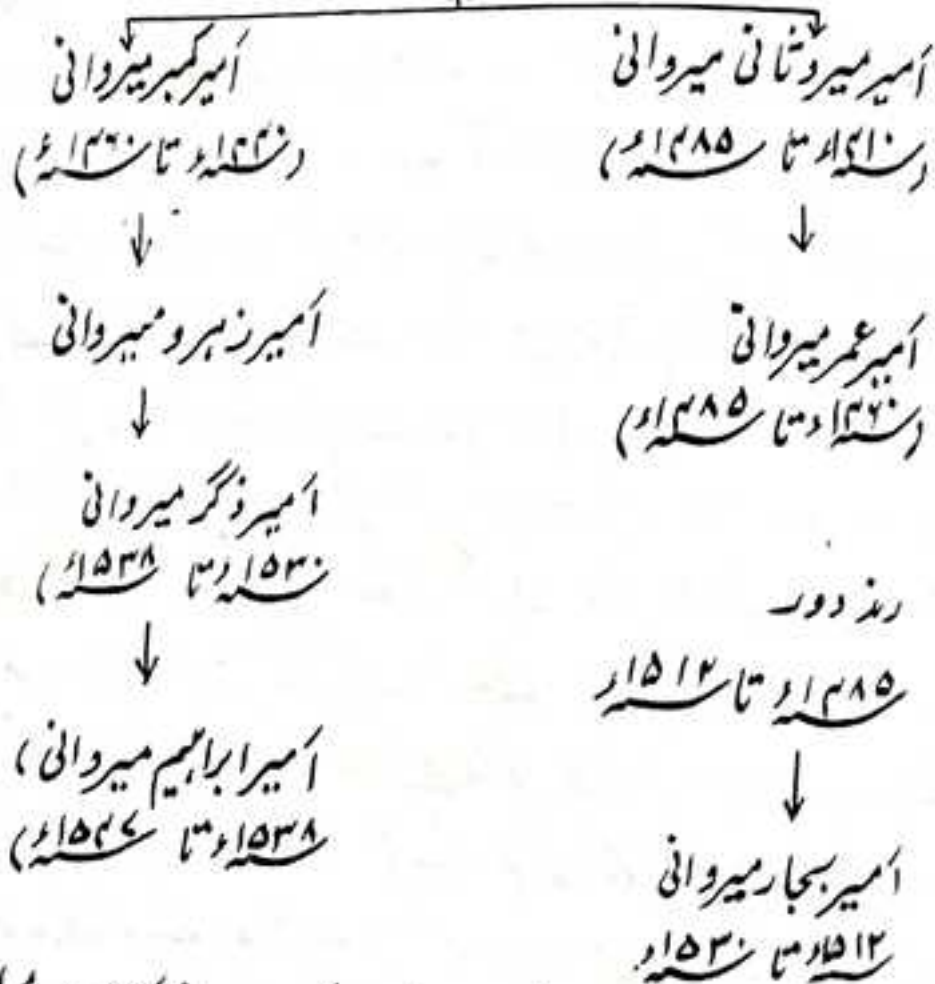 امیر میرو ثانی میروانی
(۱۴۱۰ء تا ۱۴۸۵ء)
امیر عمر میروانی
(۱۴۶۰ء تا ۱۴۸۵ء)
رند دور
۱۴۸۵ء تا ۱۵۱۲ء
امیر بجار میروانی
۱۵۱۲ء تا ۱۵۳۰ء
امیر کمبر میروانی
(۱۴۴۰ء تا ۱۴۶۰ء)
امیر زہرو میروانی
امیر زگر میروانی
۱۵۳۰ء تا ۱۵۳۸ء)
امیر ابراہیم میروانی)
۱۵۳۸ء تا ۱۵۴۷ء)